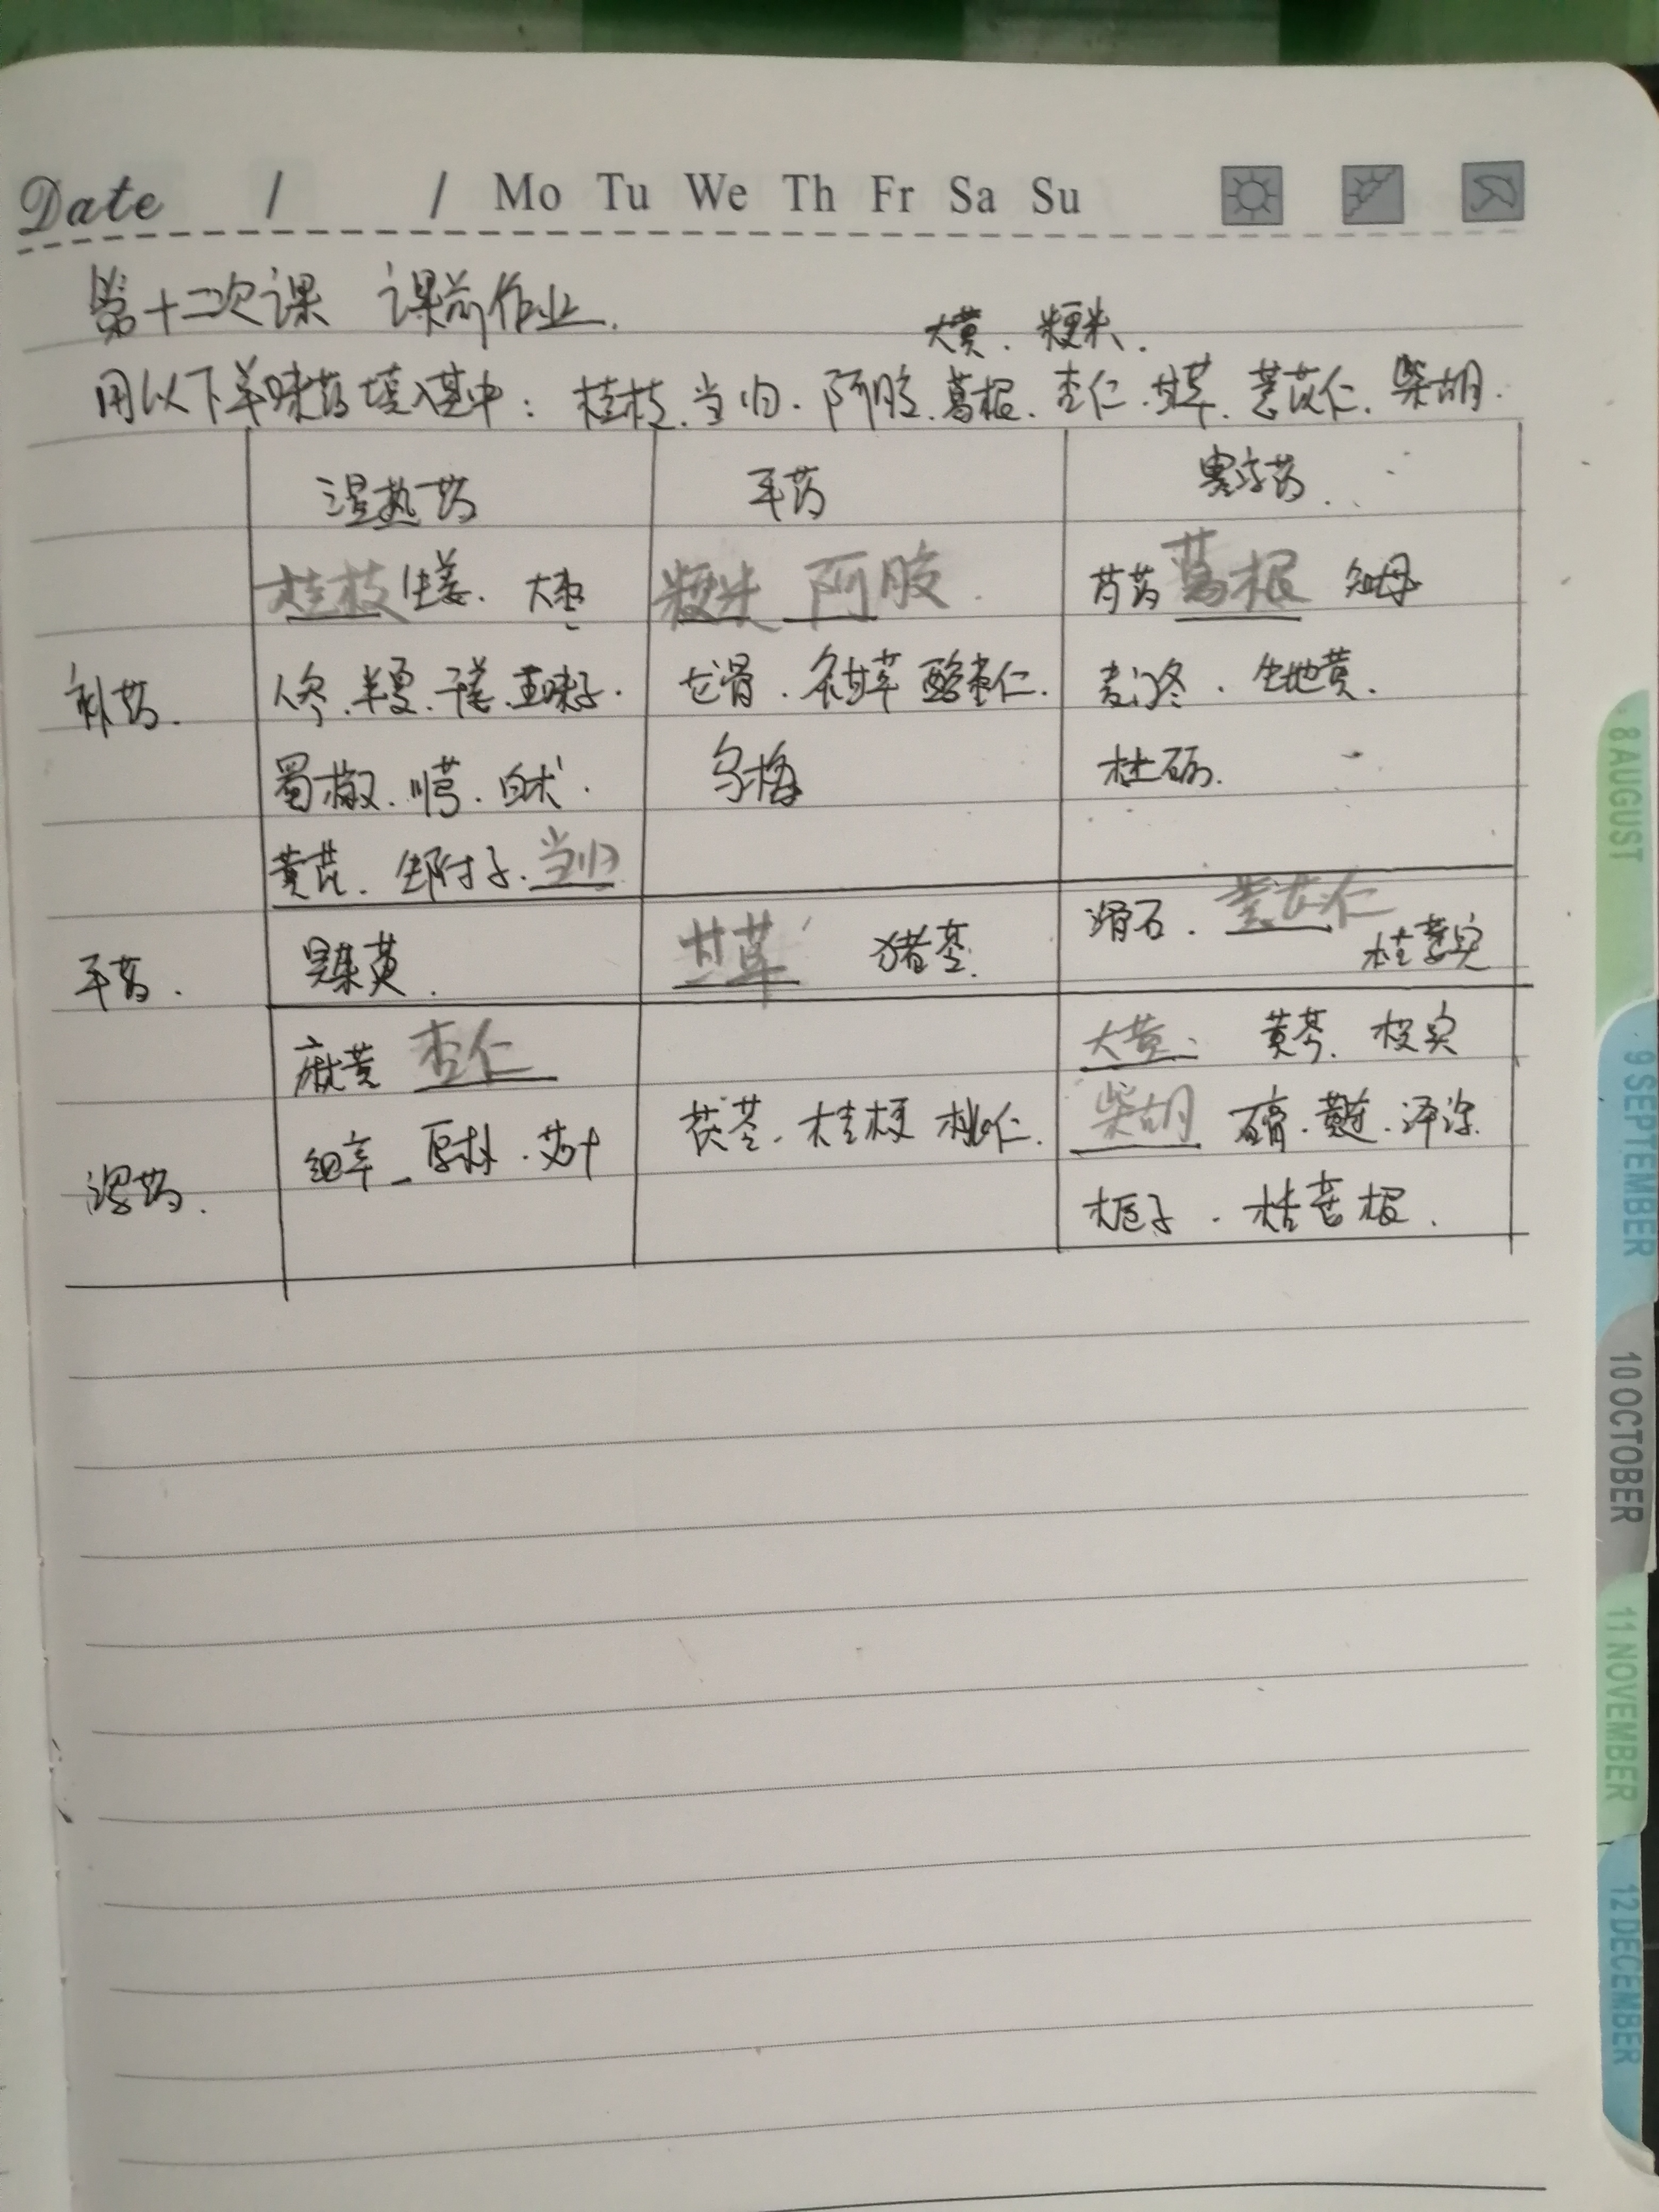 Date / / Mo Tu We Th Fr Sa Su
第十二次课 课前作业.
大黄. 粳米.
用以下单味药填入其中: 桂枝. 当归. 阿胶. 葛根. 杏仁. 甘草. 薏苡仁. 柴胡.
温热药 平药 寒凉药.
桂枝 生姜. 大枣 粳米 阿胶. 芍药 葛根 知母
补药. 人参. 半夏. 干姜. 五味子. 龙骨. 炙甘草 酸枣仁. 麦门冬. 生地黄.
蜀椒. 川芎. 白术. 乌梅 牡砺.
黄芪. 生附子. 当归
平药. 吴茱萸. 甘草 猪苓. 滑石. 薏苡仁
栝蒌实
麻黄 杏仁 大黄. 黄芩. 枳实
泻药. 细辛. 厚朴. 艾叶 茯苓. 桔梗 桃仁. 柴胡 石膏. 黄连. 泽泻.
栀子. 栝蒌根.
8 AUGUST
9 SEPTEMBER
10 OCTOBER
11 NOVEMBER
12 DECEMBER